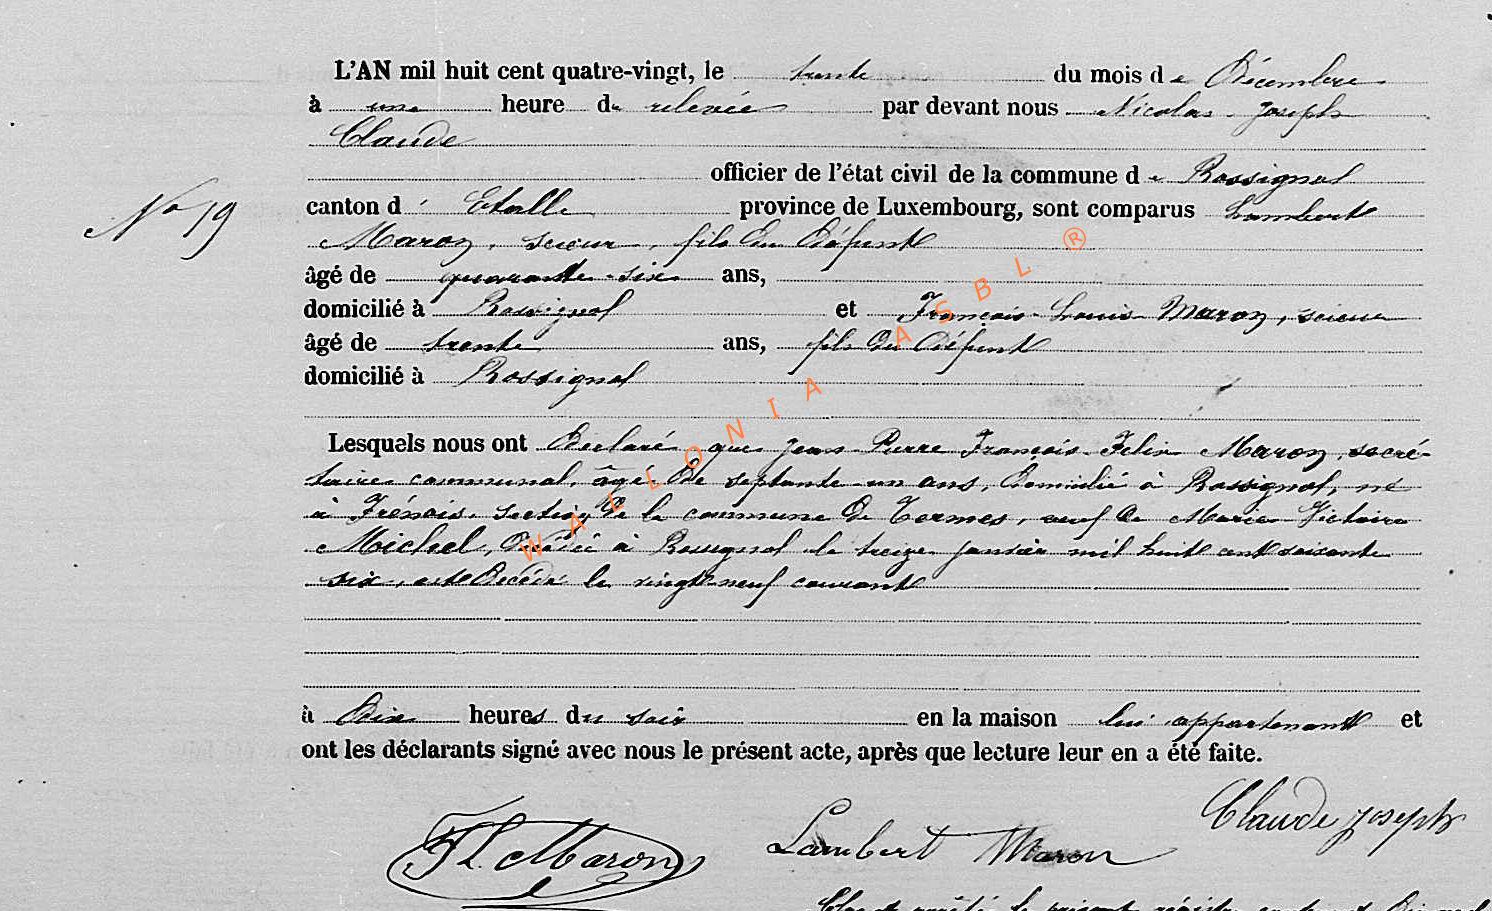 L'AN mil huit cent quatre-vingt, le trente du mois de Décembre
à une heure de relevée par devant nous Nicolas Joseph
Claude
officier de l'état civil de la commune de Rossignol
N° 19
canton d' Etalle province de Luxembourg, sont comparus Lambert
Maron, scieur, fils du défunt
âgé de quarante-six ans,
domicilié à Rossignol et François Louis Maron, scieur
âgé de trente ans, fils du défunt
domicilié à Rossignol
Lesquels nous ont Déclaré que Jean Pierre François Felix Maron, secré-
taire communal, âgé de septante un ans, domicilié à Rossignol, né
à Frénois, section de la commune de Termes, veuf de Marie Victoire
Michel, décédée à Rossignol le treize janvier mil huit cent soixante
six, est décédé le vingt-neuf courant
à dix heures du soir en la maison lui appartenant et
ont les déclarants signé avec nous le présent acte, après que lecture leur en a été faite.
Claude Joseph
FL. Maron Lambert Maron
WALLONIA ASBL ®